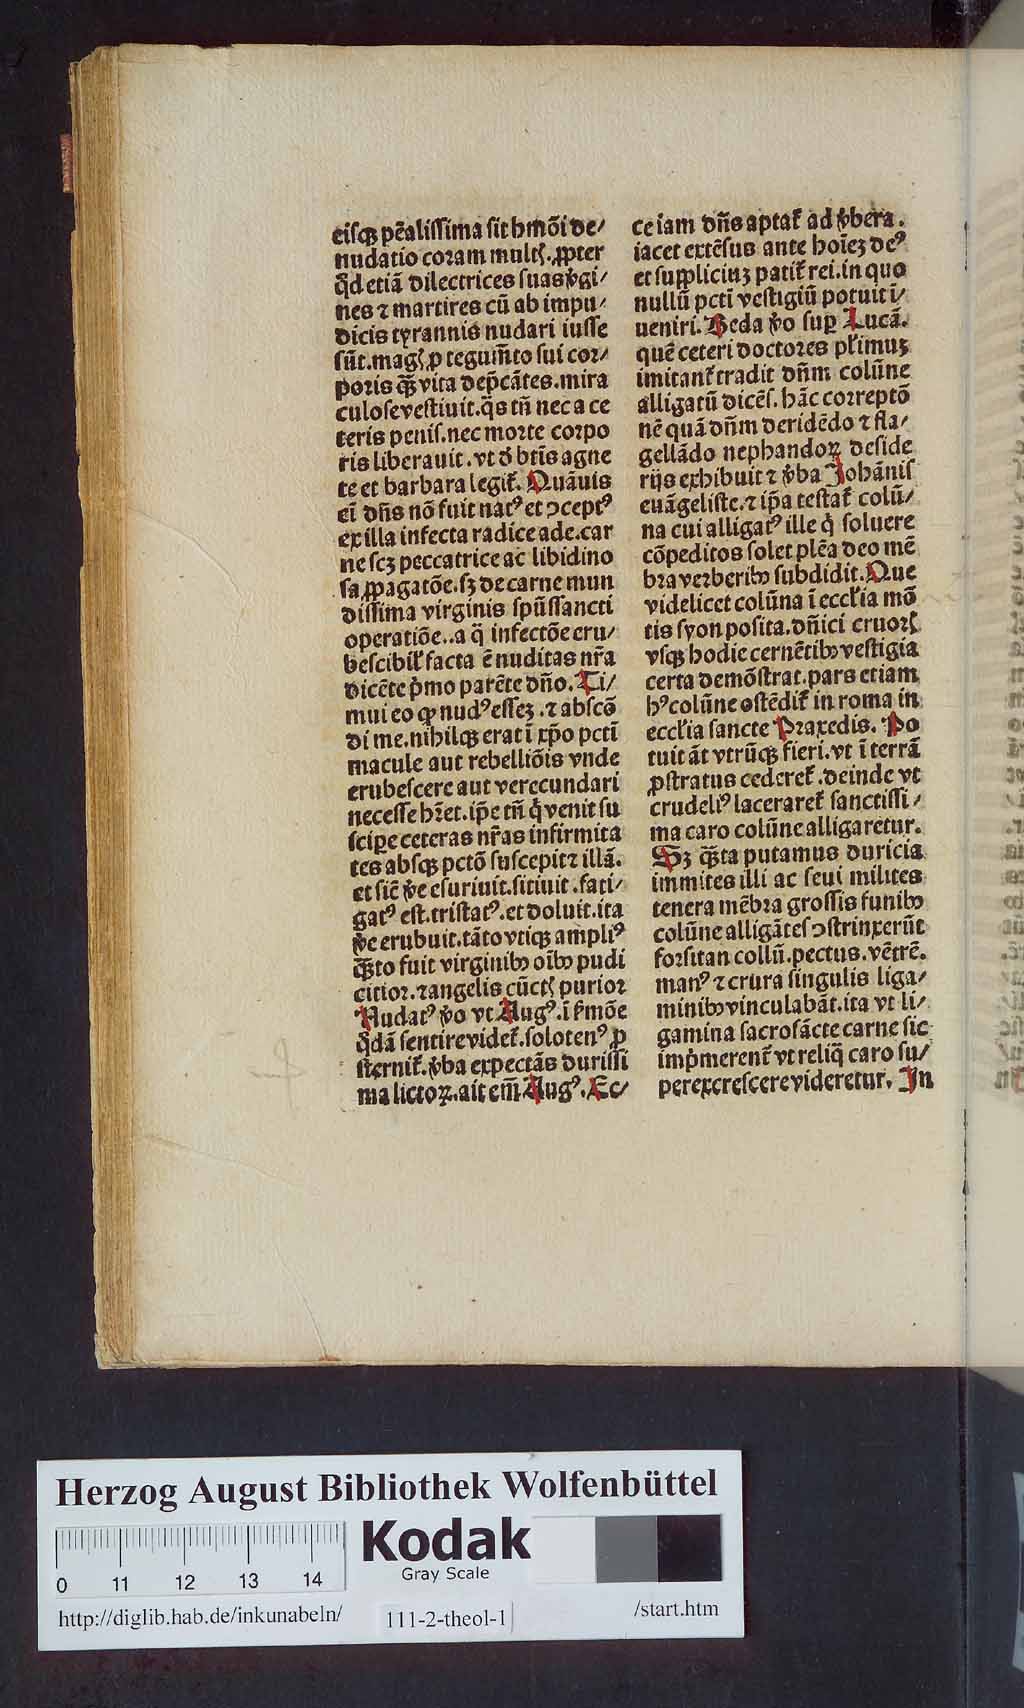 eisqꝫ pēalissima sit hmōi de/
nudatio coram multꝭ. ꝓpter
qͣd etiā dilectrices suas v̓gi/
nes ⁊ martires cū ab impu/
dicis tyrannis nudari iusse
sūt. magꝭ ꝓ tegum̄to sui cor/
poris qͣꝫ vita dep̄cātes. mira
culose vestiuit. qͣs tn̄ nec a ce
teris penis. nec morte corpo
ris liberauit. vt d̓ btīs agne
te et barbara legit᷑. Quāuis
eī dn̄s nō fuit natꝰ et ꝯceptꝰ
ex illa infecta radice ade. car
ne scꝫ peccatrice ac libidino
sa ꝓpagatōe. sꝫ de carne mun
dissima virginis spūssancti
operatiōe.. a q̄ infectōe eru/
bescibil̓ facta ē nuditas nr̄a
dicēte p̓mo parēte dn̄o. Ti/
mui eo ꝙ nudꝰ esseꝫ. ⁊ abscō
di me. nihilqꝫ erat ī xp̄o pctī
macule aut rebelliōis vnde
erubescere aut verecundari
necesse hr̄et. ip̄e tn̄ qͥ venit su
scipe ceteras nr̄as infirmita
tes absqꝫ pctō suscepit ⁊ illā.
et sic̄ v̓e esuriuit. sitiuit. fati/
gatꝰ est. tristatꝰ. et doluit. ita
v̓e erubuit. tāto vtiqꝫ ampliꝰ
qͣꝫto fuit virginibꝰ oībꝰ pudi
citior. ⁊ angelis cūctꝭ purior
Nudatꝰ v̓o vt Augꝰ. ī ẜmōe
qͦdā sentire videt᷑. solotenꝰ ꝓ
sternit᷑. v̓ba expectās durissi
ma lictoꝝ. ait em̄ Augꝰ. Ec/
ce iam dn̄s aptat᷑ ad v̓bera.
iacet extēsus ante hoīeꝫ deꝰ
et suppliciuꝫ patit᷑ rei. in quo
nullū pctī vestigiū potuit ī/
ueniri. Beda v̓o suꝑ Lucā.
quē ceteri doctores pl̓imuꝫ
imitant᷑ tradit dn̄m colūne
alligatū dicēs. hāc correptō
nē quā dn̄m deridēdo ⁊ fla/
gellādo nephandoꝝ deside
rijs exhibuit ⁊ v̓ba Johānis
euāgeliste. ⁊ ip̄a testat᷑ colū/
na cui alligatꝰ ille qͥ soluere
cōpeditos solet plēa deo mē
bra verberibꝰ subdidit. Que
videlicet colūna ī eccl̓ia mō
tis syon posita. dn̄ici cruorꝭ
vsqꝫ hodie cernētibꝰ vestigia
certa demōstrat. pars etiam
hꝰ colūne ostēdit᷑ in roma in
eccl̓ia sancte Praxedis. Po
tuit āt vtrūqꝫ fieri. vt ī terrā
ꝓstratus cederet᷑. deinde vt
crudeliꝰ laceraret᷑ sanctissi/
ma caro colūne alligaretur.
Sꝫ qͣꝫta putamus duricia
immites illi ac seui milites
tenera mēbra grossis funibꝰ
colūne alligātes ꝯstrinxerūt
forsitan collū. pectus. vētrē.
manꝰ ⁊ crura singulis liga/
minibꝰ vinculabāt. ita vt li/
gamina sacrosācte carne sic
imp̓merent᷑ vt reliq̄ caro su/
perexcrescere videretur. In
Herzog August Bibliothek Wolfenbüttel
Kodak
Gray Scale
0 11 12 13 14
http://diglib.hab.de/inkunabeln/ 111-2-theol-1 /start.htm